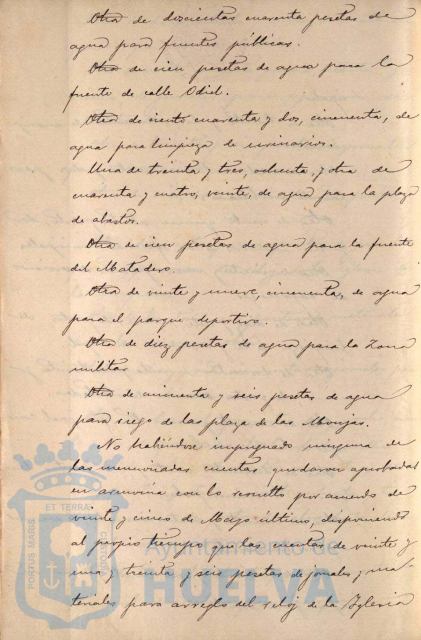 Otra de doscientas cuarenta pesetas de
agua para fuentes públicas.
Otra de cien pesetas de agua para la
fuente de calle Odiel.
Otra de ciento cuarenta y dos, cincuenta, de
agua para limpieza de urinarios.
Una de treinta y tres, ochenta, y otra de
cuarenta y cuatro, veinte, de agua para la plaza
de abastos.
Otra de cien pesetas de agua para la fuente
del Matadero.
Otra de veinte y nueve, cincuenta, de agua
para el parque deportivo.
Otra de diez pesetas de agua para la Zona
militar
Otra de cincuenta y seis pesetas de agua
para riego de las plaza de las Monjas.
No habiéndose impugnado ninguna de
las mencionadas cuentas quedaron aprobadas
en armonia con lo resuelto por acuerdo de
veinte y cinco de Mayo último, disponiendo
al propio tiempo que las cuentas de veinte y
una y treinta y seis pesetas de jornales y ma-
teriales para arreglo del reloj de la Iglesia
PORTUS MARIS
ET TERRA
CUSTODIA
Ayuntamiento de
HUELVA